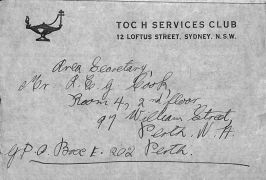 TOC H SERVICES CLUB
12 LOFTUS STREET, SYDNEY, N.S.W.
Area Secretary
Mr L. E. G Cook
Room 4, 2nd floor
97 William Street,
Perth. W. A.
G.P.O. Box E. 202 Perth.